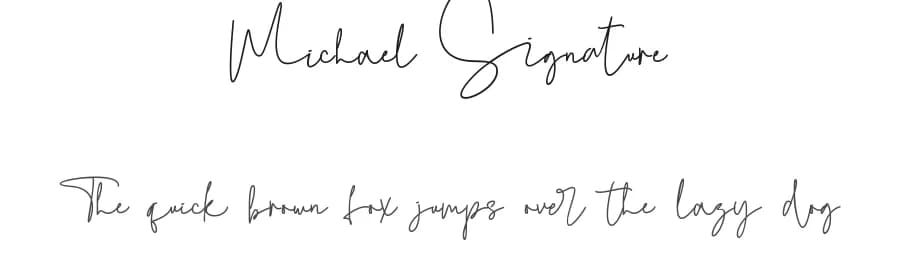 Michael Signature
The quick brown fox jumps over the lazy dog